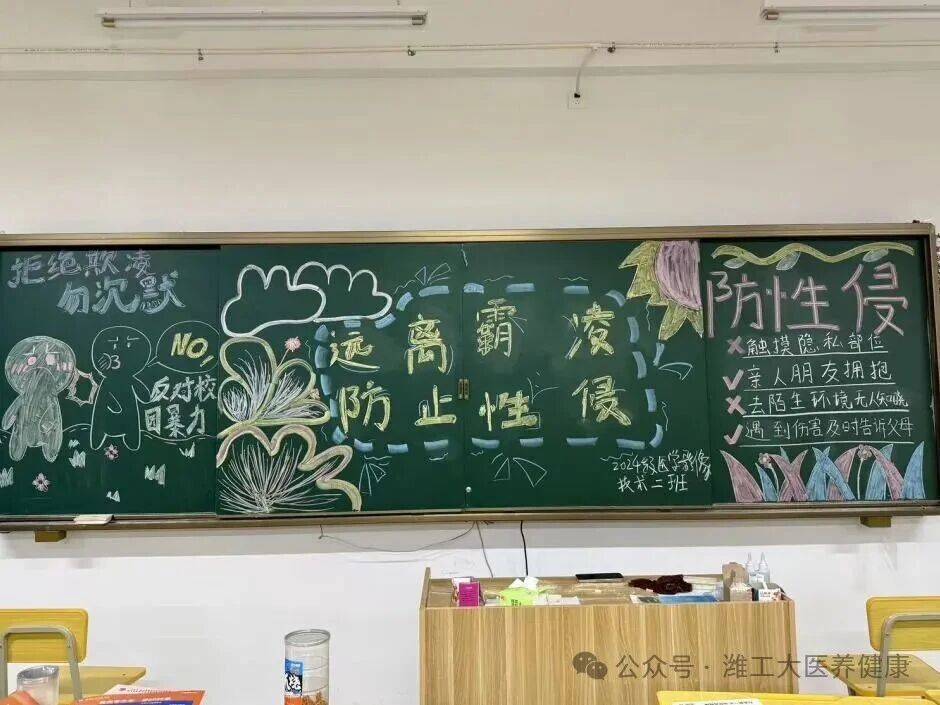 拒绝欺凌
勿沉默
NO,
反对校
园暴力
远离霸凌
防止性侵
2024级医学影像
技术二班
防性侵
触摸隐私部位
亲人朋友拥抱
去陌生环境无人知晓
遇到伤害及时告诉父母
公众号·潍工大医养健康